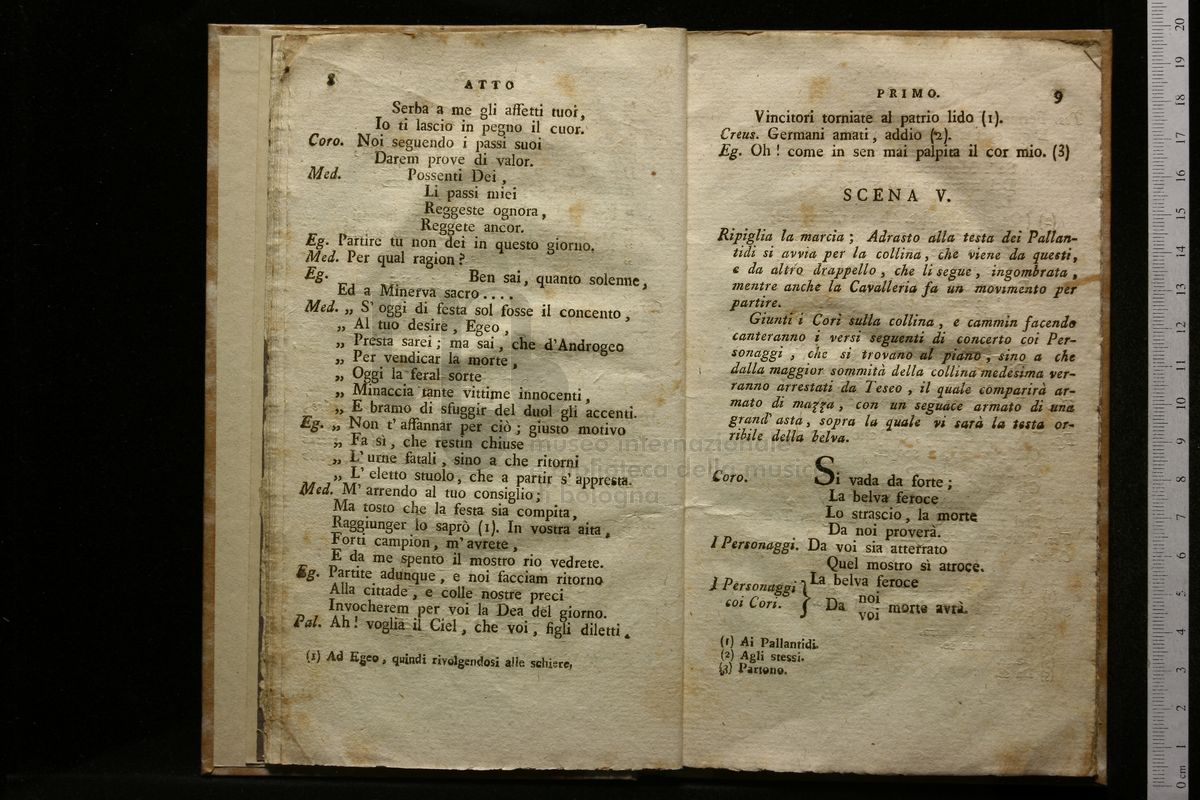 8
ATTO
Serba a me gli affetti tuoi,
Io ti lascio in pegno il cuor.
Coro. Noi seguendo i passi suoi
Darem prove di valor.
Med. Possenti Dei,
Li passi miei
Reggeste ognora,
Reggete ancor.
Eg. Partire tu non dei in questo giorno.
Med. Per qual ragion?
Eg. Ben sai, quanto solenne,
Ed a Minerva sacro....
Med. „ S' oggi di festa sol fosse il concento,
„ Al tuo desire, Egeo,
„ Presta sarei; ma sai, che d'Androgeo
„ Per vendicar la morte,
„ Oggi la feral sorte
„ Minaccia tante vittime innocenti,
„ E bramo di sfuggir del duol gli accenti.
Eg. „ Non t' affannar per ciò; giusto motivo
„ Fa sì, che restin chiuse
„ L' urne fatali, sino a che ritorni
„ L' eletto stuolo, che a partir s' appresta.
Med. M' arrendo al tuo consiglio;
Ma tosto che la festa sia compita,
Raggiunger lo saprò (1). In vostra aita,
Forti campion, m' avrete,
E da me spento il mostro rio vedrete.
Eg. Partite adunque, e noi facciam ritorno
Alla cittade, e colle nostre preci
Invocherem per voi la Dea del giorno.
Pal. Ah! voglia il Ciel, che voi, figli diletti,
(1) Ad Egeo, quindi rivolgendosi alle schiere,
PRIMO.
9
Vincitori torniate al patrio lido (1).
Creus. Germani amati, addio (2).
Eg. Oh! come in sen mai palpita il cor mio. (3)
SCENA V.
Ripiglia la marcia; Adrasto alla testa dei Pallan-
tidi si avvia per la collina, che viene da questi,
e da altro drappello, che li segue, ingombrata,
mentre anche la Cavalleria fa un movimento per
partire.
Giunti i Cori sulla collina, e cammin facendo
canteranno i versi seguenti di concerto coi Per-
sonaggi, che si trovano al piano, sino a che
dalla maggior sommità della collina medesima ver-
ranno arrestati da Teseo, il quale comparirà ar-
mato di mazza, con un seguace armato di una
grand' asta, sopra la quale vi sarà la testa or-
ribile della belva.
Coro. Si vada da forte;
La belva feroce
Lo strascio, la morte
Da noi proverà.
I Personaggi. Da voi sia atterrato
Quel mostro sì atroce.
I Personaggi } La belva feroce
coi Cori. Da noi voi morte avrà.
(1) Ai Pallantidi.
(2) Agli stessi.
(3) Partono.
museo internazionale
biblioteca della musica
di bologna
0 cm 1 2 3 4 5 6 7 8 9 10 11 12 13 14 15 16 17 18 19 20